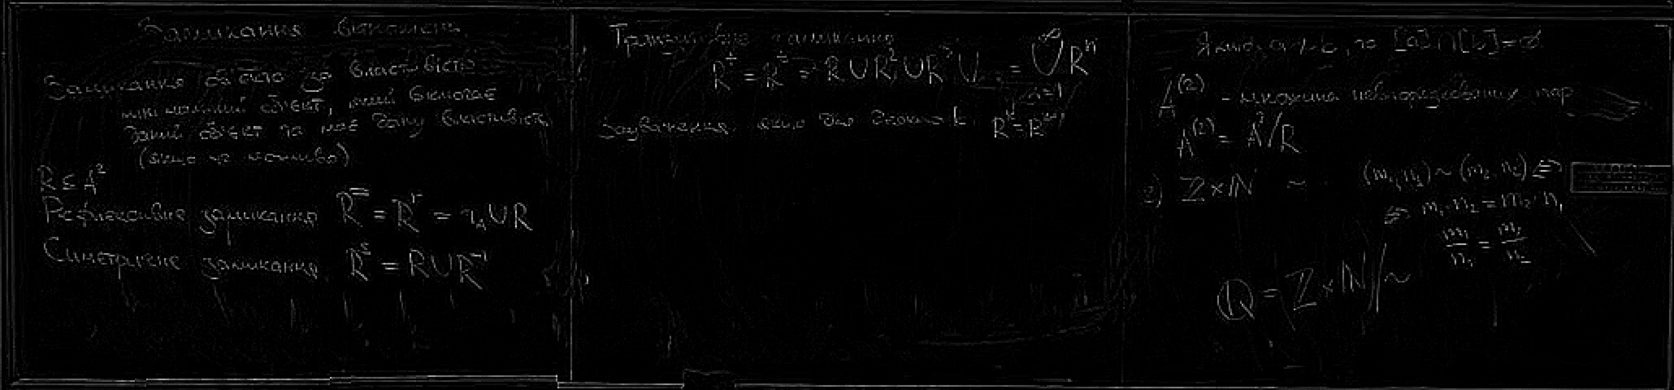 Замикання відношень.
Замикання об'єкту за властивістю
мінімальний об'єкт, який включає
даний об'єкт та має дану властивість,
(якщо це можливо)
R ⊆ A²
Рефлексивне замикання R⁼ = Rʳ = i_A ∪ R
Симетричне замикання Rˢ = R ∪ R⁻¹
Транзитивне замикання
R⁺ = Rᵗ = R ∪ R² ∪ R³ ∪ ... = ⋃ₙ₌₁^∞ Rⁿ
Зауваження, якщо для деякого k
Якщо a ≁ b, то [a] ∩ [b] = ∅
A⁽²⁾ - множина невпорядкованих пар
A⁽²⁾ = A²/R
2) Z × N ~ (m₁, n₁) ~ (m₂, n₂) ⇔
⇔ m₁·n₂ = m₂·n₁
Q = Z × N/~